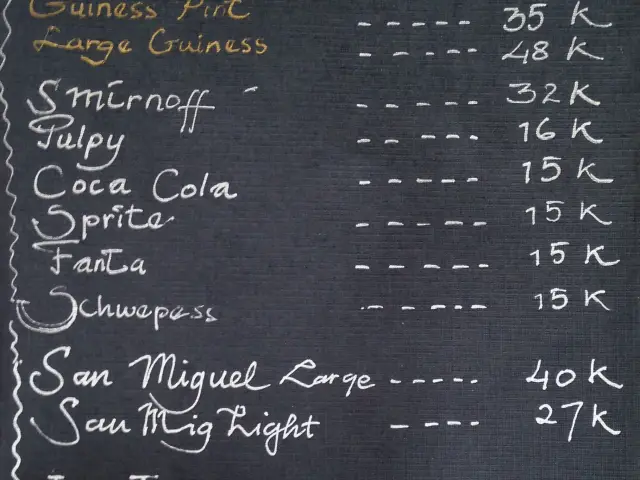 Guiness Pint ----- 35 K
Large Guiness - ---- 48 K
Smirnoff - ----- 32 K
Pulpy -- --- 16 K
Coca Cola ----- 15 K
Sprite ----- 15 K
Fanta ----- 15 K
Schwepess ----- 15 K
San Miguel Large ----- 40 K
San Mig Light ---- 27 K